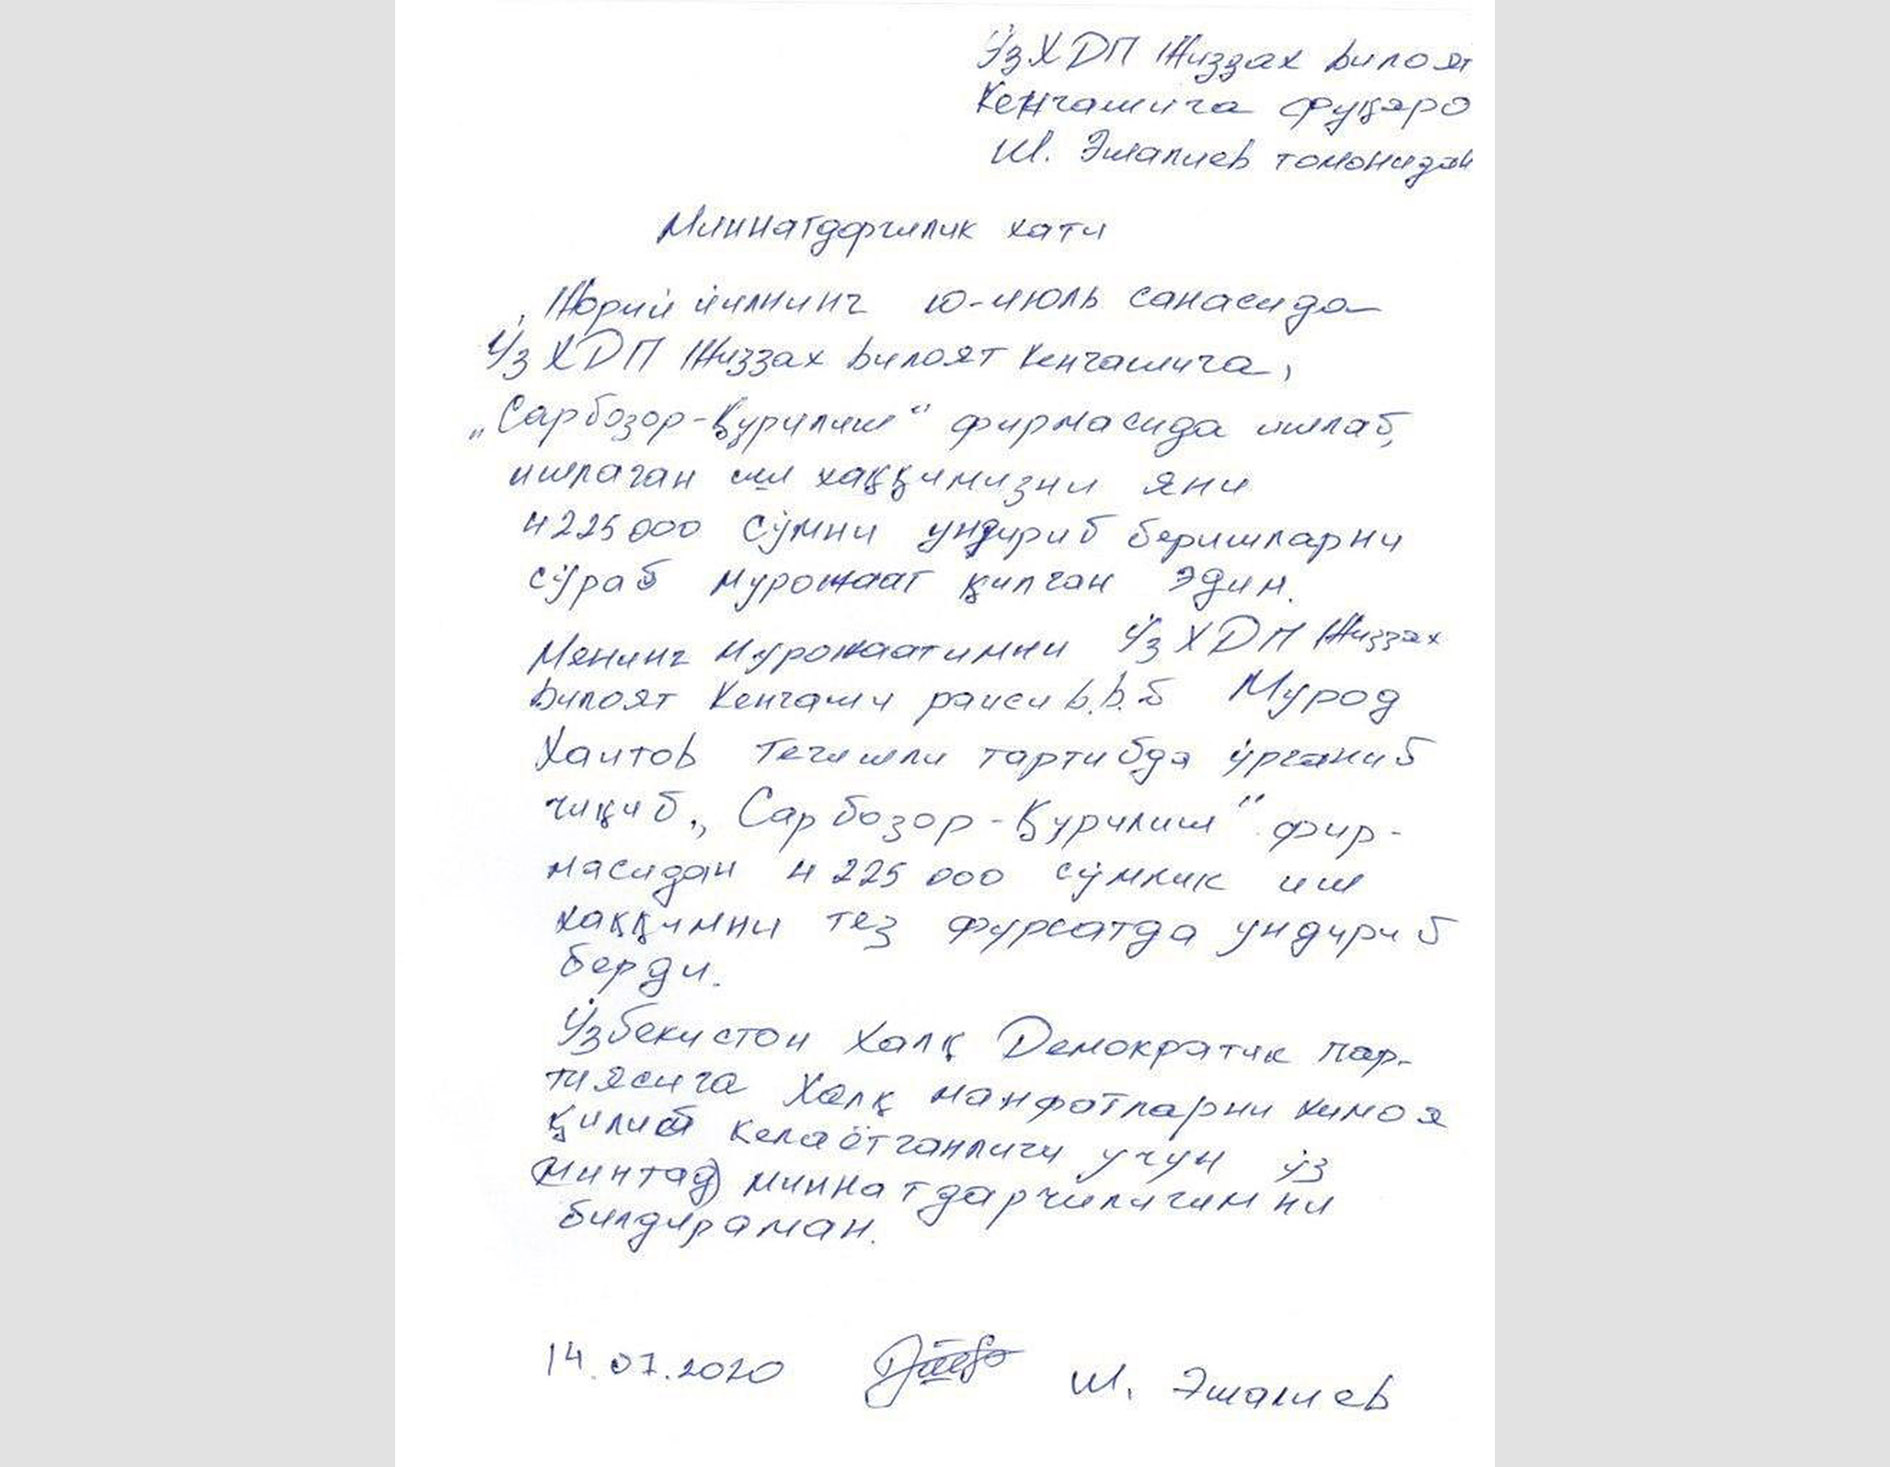 ЎзХДП Жиззах вилоят
Кенгашига фуқаро
Ш. Эшалиев томонидан
Миннатдорчилик хати
Жорий йилнинг 10-июль санасида
ЎзХДП Жиззах вилоят Кенгашига,
„Сарбозор-Қурилиш“ фирмасида ишлаб,
ишлаган иш хаққимизни яни
4225000 сўмни ундириб беришларни
сўраб мурожаат қилган эдим.
Менинг мурожаатимни ЎзХДП Жиззах
вилоят Кенгаши раиси в.в.б Мурод
Хаитов тегишли тартибда ўрганиб
чиқиб, „Сарбозор-Қурилиш“ фир-
масидан 4 225 000 сўмлик иш
хаққимни тез фурсатда ундириб
берди.
Ўзбекистон Халқ Демократик пар-
тиясига Халқ манфотларни химоя
қилиб келаётганлиги учун ўз
миннатдарчилигимни
билдираман.
14.07.2020 Ш. Эшалиев